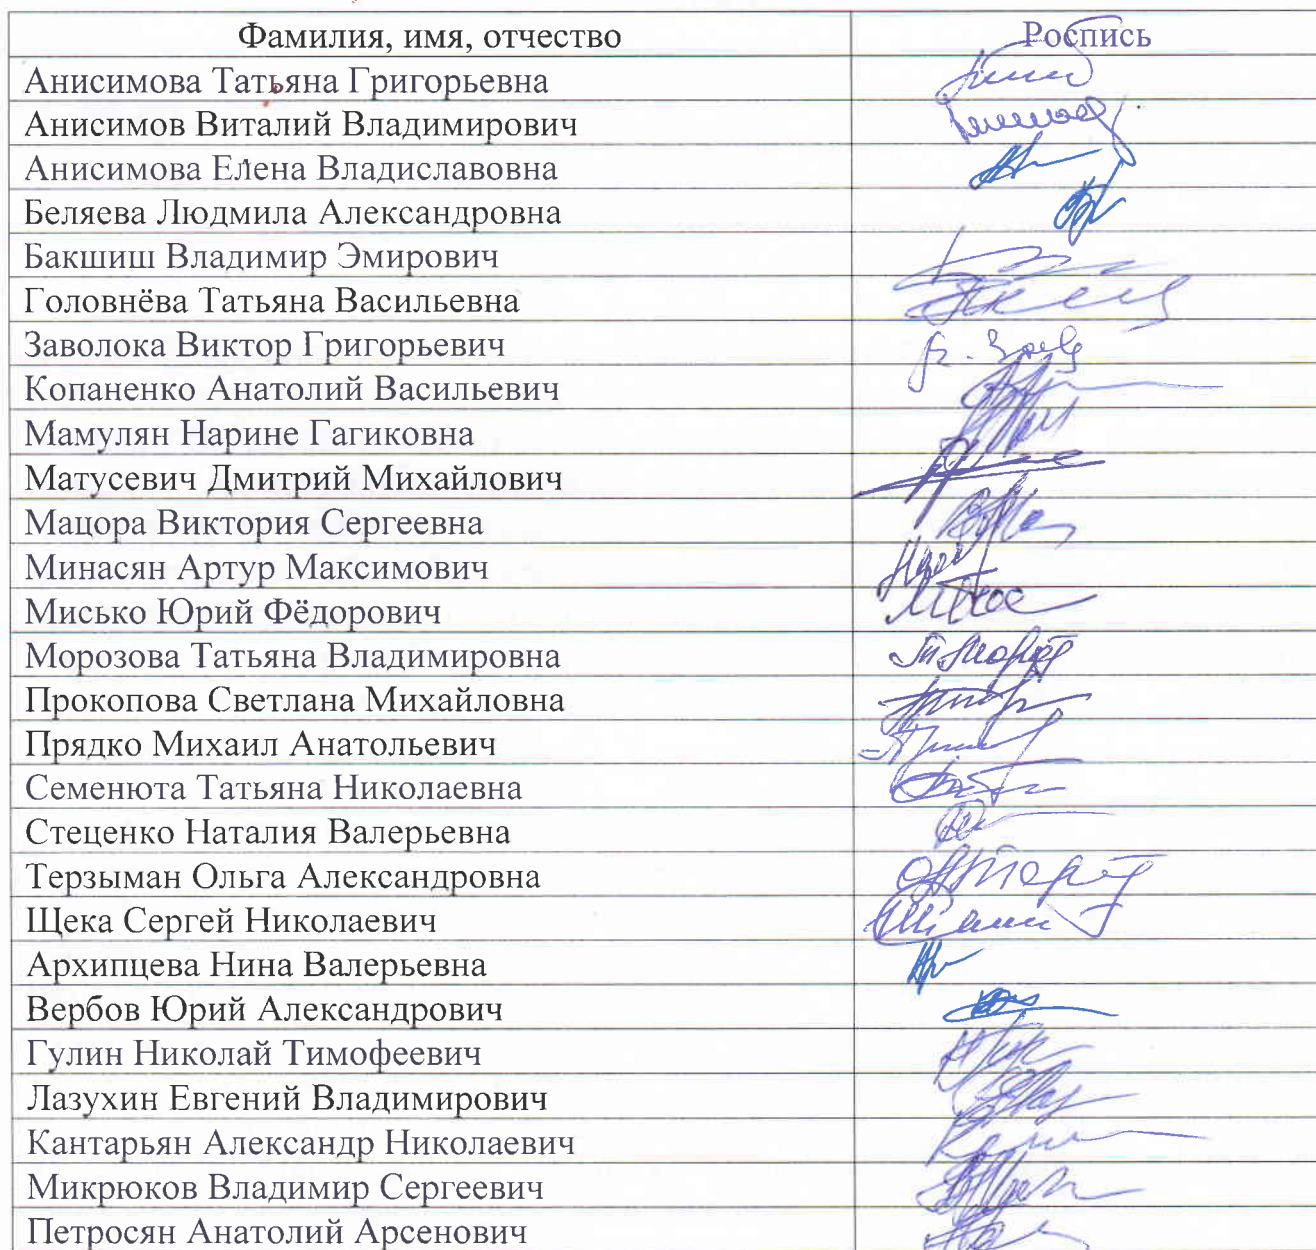 Фамилия, имя, отчество Роспись
Анисимова Татьяна Григорьевна
Анисимов Виталий Владимирович
Анисимова Елена Владиславовна
Беляева Людмила Александровна
Бакшиш Владимир Эмирович
Головнёва Татьяна Васильевна
Заволока Виктор Григорьевич
Копаненко Анатолий Васильевич
Мамулян Нарине Гагиковна
Матусевич Дмитрий Михайлович
Мацора Виктория Сергеевна
Минасян Артур Максимович
Мисько Юрий Фёдорович
Морозова Татьяна Владимировна
Прокопова Светлана Михайловна
Прядко Михаил Анатольевич
Семенюта Татьяна Николаевна
Стеценко Наталия Валерьевна
Терзыман Ольга Александровна
Щека Сергей Николаевич
Архипцева Нина Валерьевна
Вербов Юрий Александрович
Гулин Николай Тимофеевич
Лазухин Евгений Владимирович
Кантарьян Александр Николаевич
Микрюков Владимир Сергеевич
Петросян Анатолий Арсенович